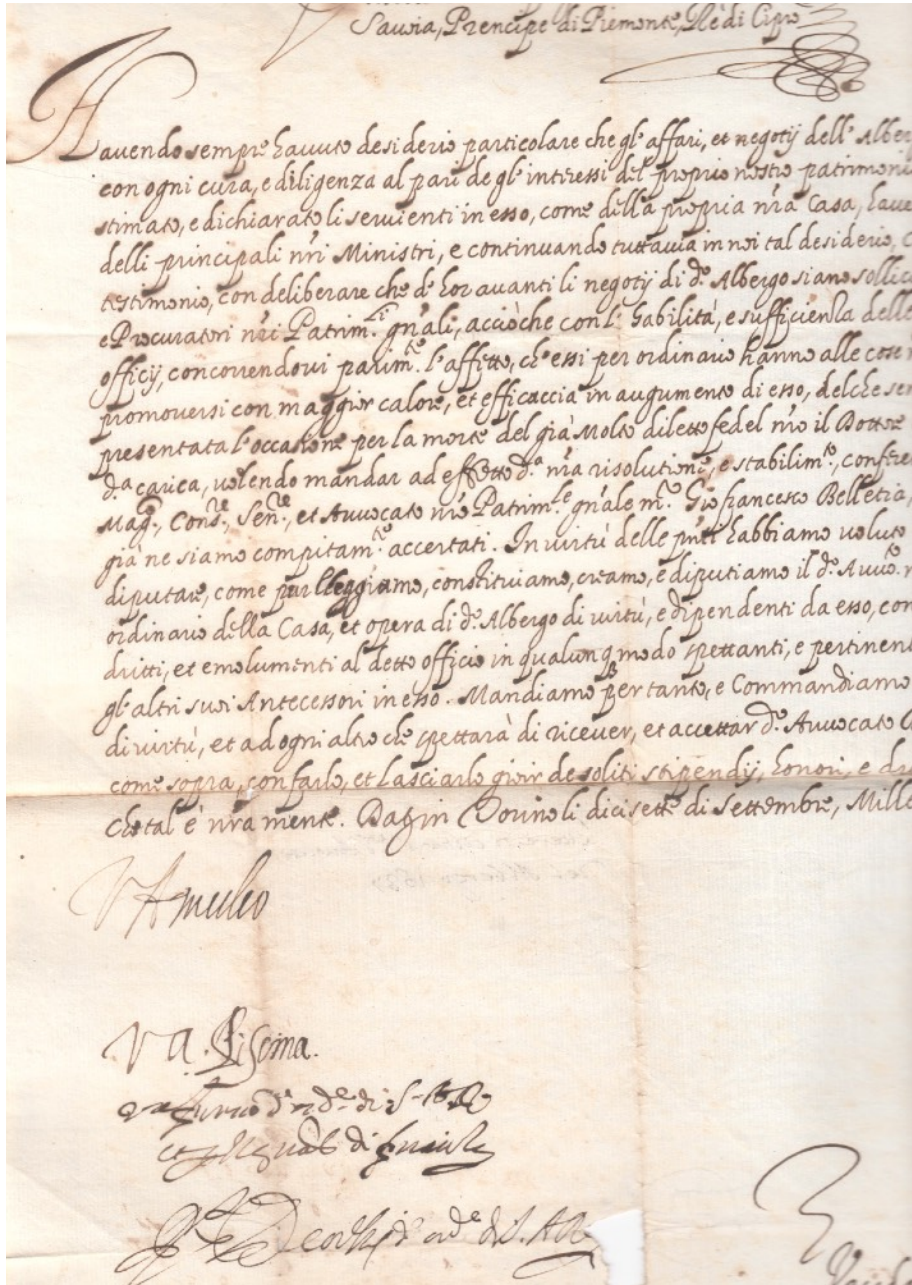 Savoia, Prencipe di Piemonte, Rè di Cipro
Havendo sempre havuto desiderio particolare che gl' affari, et negotij dell' Alber
con ogni cura, e diligenza al pari de gl' interessi del proprio nostro patrimoni
stimato, e dichiarato li servienti in esso, come della propria nra Casa, have
delli principali nri Ministri, e continuando tuttavia in noi tal desiderio,
testimonio, con deliberare che d' hor avanti li negotij di do. Albergo siano sollic
e Procuratori nri Patrim.li gn'ali, acciòche con l' habilità, e sufficienza delle
officij, concorrendovi parim.te l' affetto, ch' essi per ordinario hanno alle cose n
promoversi con maggior calore, et efficaccia in augumento di esso, delche se
presentata l' occasione per la morte del già Molto diletto fedel nro il Dottore
da. carica, volendo mandar ad effetto da. nra risolutione, e stabilim.to, confere
Mag.co, Cons.re, Sen.re, et Avvocato nro Patrim.le gn'ale m.r Gio francesco Belletia,
già ne siamo compitam.te accertati. In virtù delle pnti habbiamo voluto
diputare, come per leggiamo, constituiamo, creamo, e diputiamo il do. Avvo.
ordinario della Casa, et opera di do. Albergo di virtù, e dipendenti da esso, con
dritti, et emolumenti al detto officio in qualunq modo spettanti, e pertinen
gl' altri suoi Antecessori in esso. Mandiamo per tanto, e Commandiamo
di virtù, et ad ogni altro che spettarà di ricever, et accettar do. Avvocato
come sopra, con farlo, et lasciarlo gioir de soliti stipendij, honori, e dr
Che tal è nra mente. Dat in Torino li dicisette di Settembre, Mille
V Amedeo
Va.